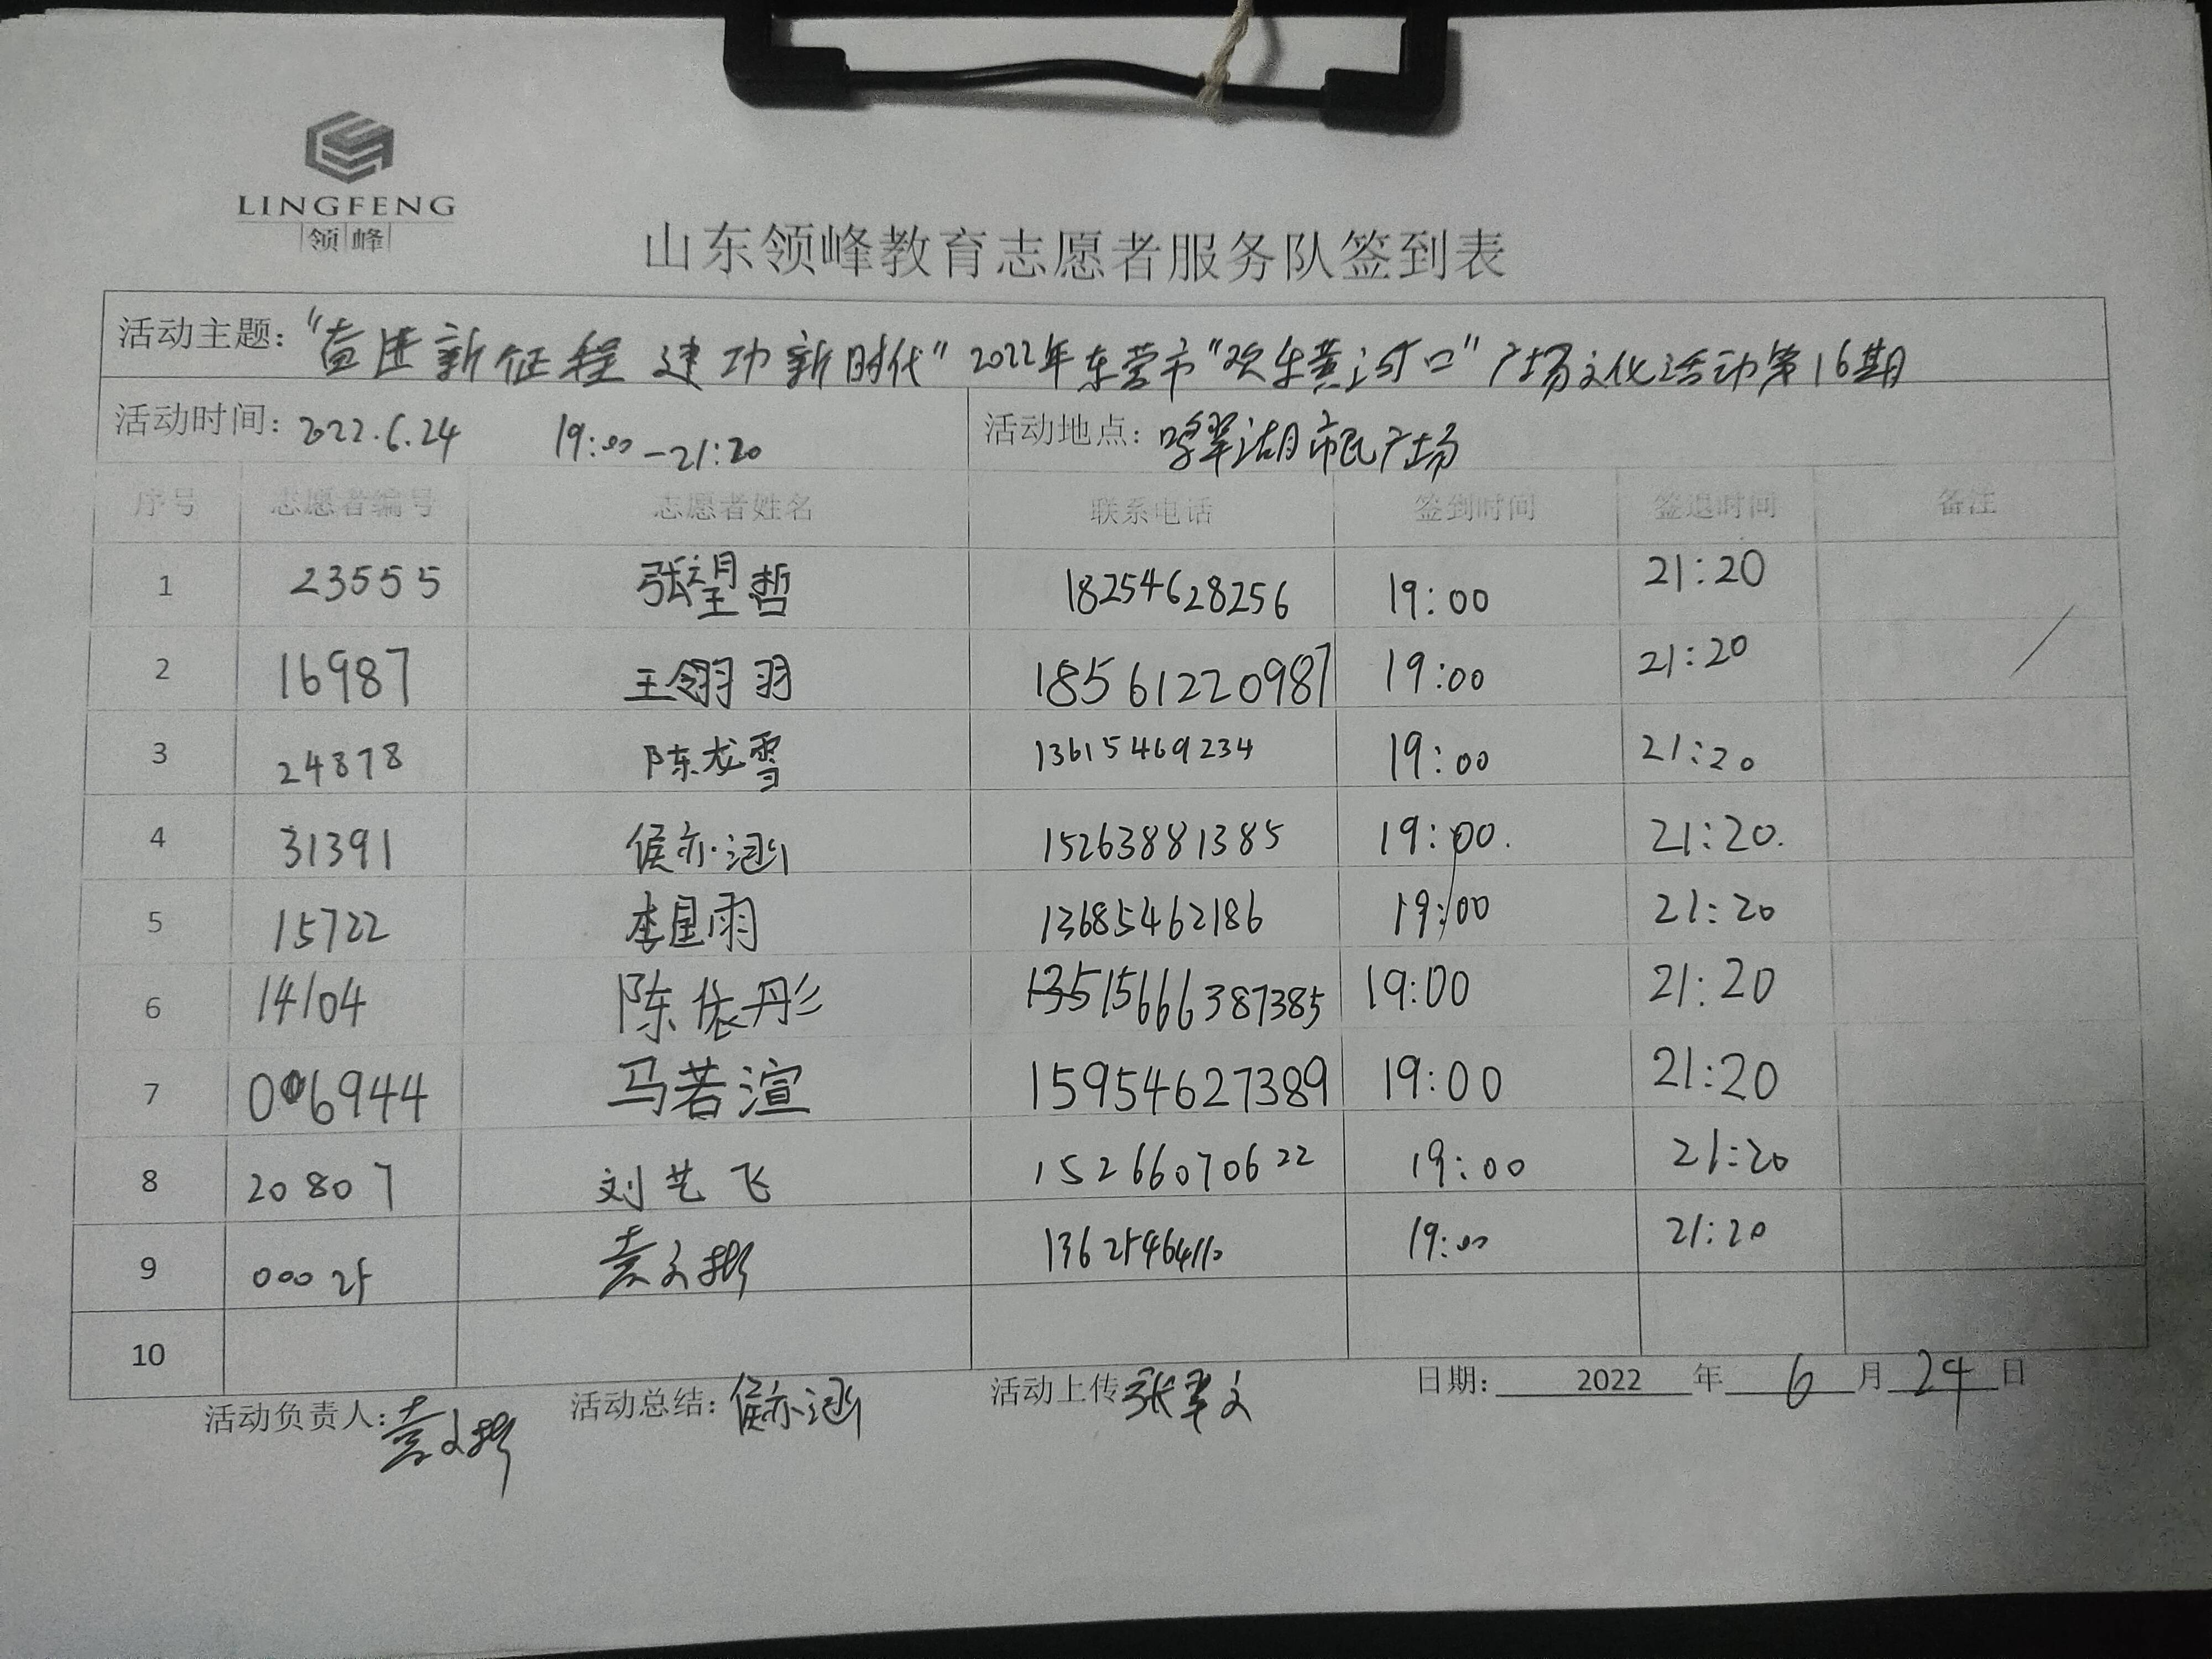 LINGFENG
领峰
山东领峰教育志愿者服务队签到表
活动主题："奋进新征程 建功新时代"2022年东营市"欢乐黄河口"广场文化活动第16期
活动时间：2022.6.24 19:00-21:20 活动地点：鸣翠湖市民广场
序号 志愿者编号 志愿者姓名 联系电话 签到时间 签退时间 备注
1 23555 张望哲 18254628256 19:00 21:20
2 16987 王翎羽 18561220987 19:00 21:20
3 24878 陈龙雪 13615469234 19:00 21:20
4 31391 侯亦涵 15263881385 19:00. 21:20.
5 15722 李国雨 13685462186 19:00 21:20
6 14104 陈依彤 15666387385 19:00 21:20
7 006944 马若渲 15954627389 19:00 21:20
8 20807 刘艺飞 15266070622 19:00 21:20
9 00025 袁文 13625464110 19:00 21:20
10
活动负责人：袁文 活动总结：侯亦涵 活动上传 张翠文 日期： 2022 年 6 月 24 日